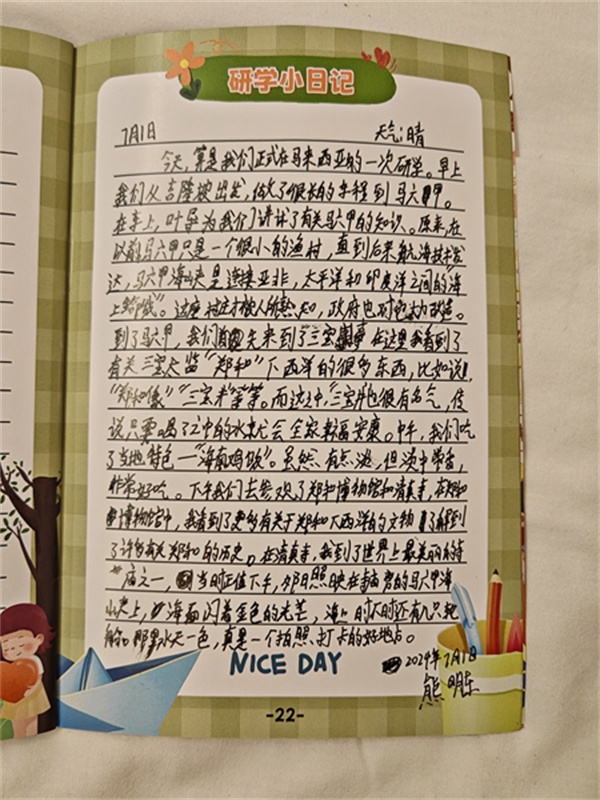 研学小日记
7月1日 天气:晴
今天,算是我们正式在马来西亚的一次研学。早上
我们从吉隆坡出发,做了很长的车程到马六甲。
在车上,叶导为我们讲述了有关马六甲的知识。原来,在
以前马六甲只是一个很小的渔村,直到后来航海技术发
达,马六甲海峡是连接亚非,太平洋和印度洋之间的"海
上
这座村庄才被人们熟知,政府也对
到了马六甲,我们首先来到了三宝 在这里我看到了
有关三宝太监"郑和"下西洋的很多东西,比如说!
"郑和像""三宝井"等等。而这之中,"三宝井"也很有名气,传
说只要喝了之中的水就会全家幸福安康。中午,我们吃
了当地特色—"海南鸡饭"。虽然有点淡,但淡中带香,
非常好吃。下午我们去参观了郑和博物馆和清真寺,在郑和
博物馆中,我看到了更多有关于郑和下西洋的文物,了解到
了许多有关郑和的历史。在清真寺,我到了世界上最美丽的寺
庙之一,当时正值下午,夕日照映在 的马六甲海
峡上,海面闪着金色的光芒,海上时不时还有几只
船。那里水天一色,真是一个拍照、打卡的好地点。
NICE DAY
2024年7月1日
熊
-22-